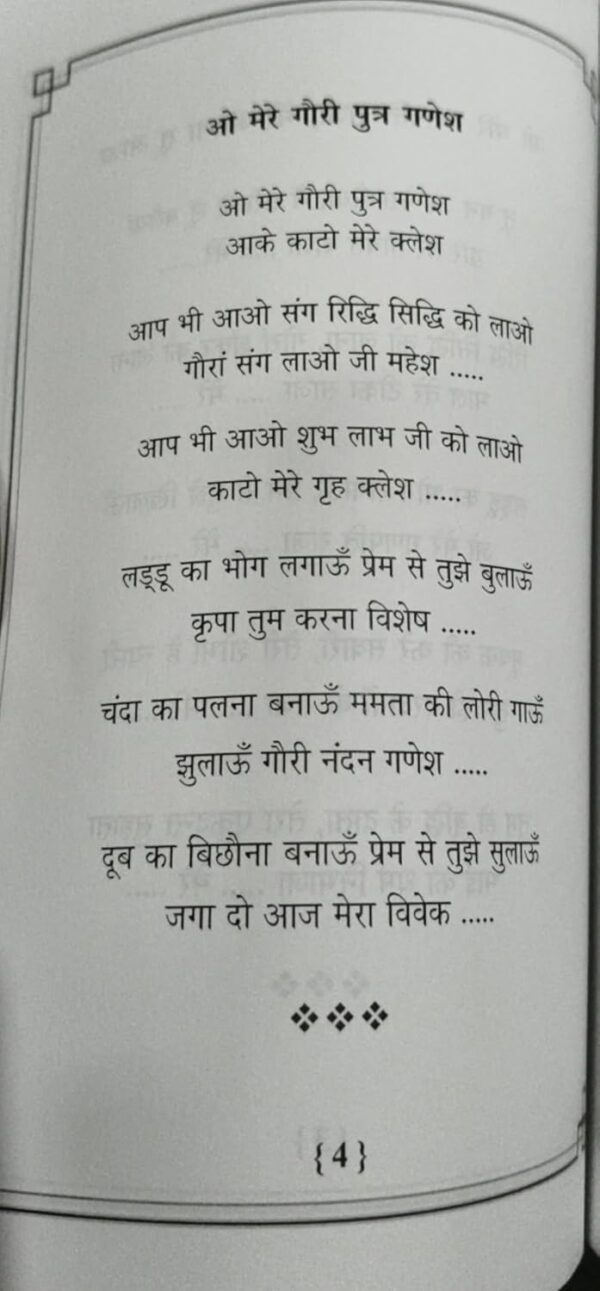 ओ मेरे गौरी पुत्र गणेश
ओ मेरे गौरी पुत्र गणेश
आके काटो मेरे क्लेश
आप भी आओ संग रिद्धि सिद्धि को लाओ
गौरां संग लाओ जी महेश .....
आप भी आओ शुभ लाभ जी को लाओ
काटो मेरे गृह क्लेश .....
लड्डू का भोग लगाऊँ प्रेम से तुझे बुलाऊँ
कृपा तुम करना विशेष .....
चंदा का पलना बनाऊँ ममता की लोरी गाऊँ
झुलाऊँ गौरी नंदन गणेश .....
दूब का बिछौना बनाऊँ प्रेम से तुझे सुलाऊँ
जगा दो आज मेरा विवेक .....
{4}